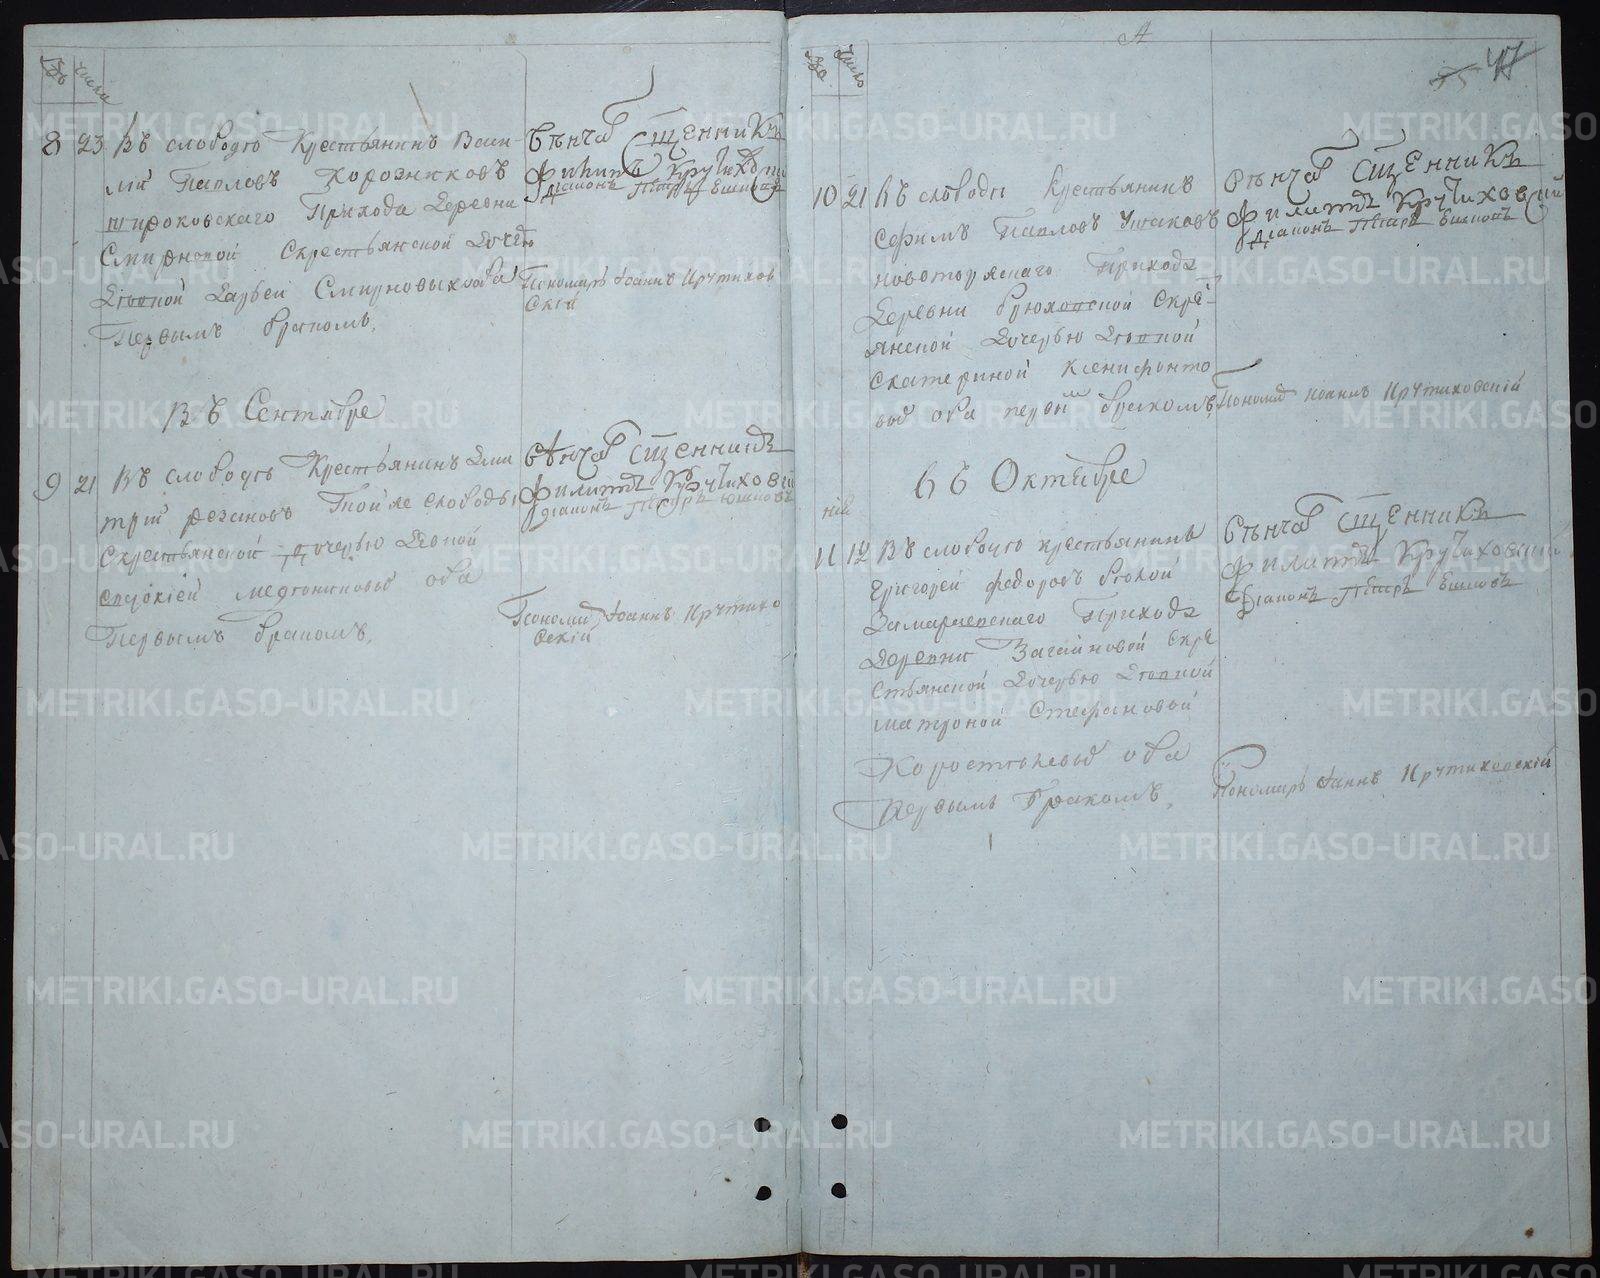 числа
8 23 Въ слободѣ Крестьянинъ Васи-
лій Павловъ
широковскаго Прихода Деревни
Смирновой Скрестьянской дочерью
Дѣвкой Дарьей Смирновыхъ оба
Первымъ бракомъ.
Вѣнчалъ Сщенникъ
Филиппъ Крутиховскій
Діаконъ Петръ
Пономарь Іоаннъ Крутихов
скій
Въ Сентябре
9 21 Въ слободѣ Крестьянинъ Дми
трій резановъ Тойже слободы
Скрестьянской дочерью Дѣвкой
оба
Первымъ бракомъ.
Вѣнчалъ Сщенникъ
Филиппъ Крутиховскій
діаконъ Петръ
Пономарь Іоаннъ Крутихо
вскій
число
47
10 21 Въ слободы Крестьянинъ
Ефимъ Павловъ Ушаковъ
новоторжскаго Прихода
Деревни Скре-
янской дочерью Дѣвкой
Екатериной Ксенифонто
вой оба первымъ бракомъ.
Вѣнчалъ Сщенникъ
Филиппъ Крутиховскій
Діаконъ Петръ
Пономарь Иоаннъ Крутиховскій
Въ Октябре
11 12 Въ слободѣ крестьянинъ
Григорей Федоровъ
Прихода
Деревни Загайновой Скре
стьянской дочерью Дѣвкой
матроной Стефановой
Коростелевой оба
Первымъ бракомъ.
Вѣнчалъ Сщенникъ
Филиппъ Крутиховскій
Діаконъ Петръ
Пономарь Іоаннъ Крутиховскій
METRIKI.GASO-URAL.RU